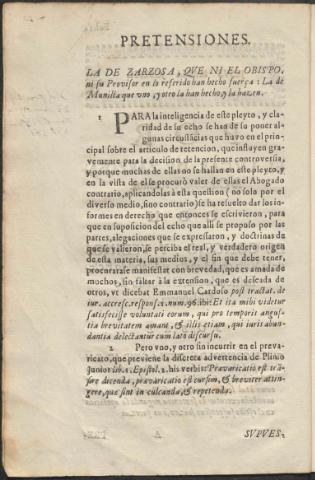 PRETENSIONES.
LA DE ZARZOSA, QVE NI EL OBISPO,
ni su Provisor en lo referido han hecho fuerça: La de
Munilla que vno, y otro la han hecho, y la hazen.
1 PARA la inteligencia de este pleyto, y cla-
ridad de su echo se han de suponer al-
gunas circunstãcias que havo en el princi-
pal sobre el articulo de retencion, que influyen gra-
vemente para la decision de la presente controversia,
y porque muchas de ellas no se hallan en este pleyto, y
en la vista de èl se procurò valer de ellas el Abogado
contrario, aplicandolas à esta question (no solo por el
diverso medio, sino contrario) se ha resuelto dar los in-
formes en derecho que entonces se escrivieron, para
que en suposicion del echo que alli se propuso por las
partes, alegaciones que se expressaron, y doctrinas de
que se valieron, se perciba el real, y verdadero origen
de esta materia, sus medios, y el fin que debe tener,
procurarase manifestar con brevedad, que es amada de
muchos, sin faltar à la extension, que es deseada de
otros, vt dicebat Emmanuel Cardoso post tractat. de
iur. accresc. respons. 1. num. 96. ibi: Et ita mibi videtur
satisfecisse voluntati eorum, qui pro temporis angus-
tia brevitatem amant, & illis etiam, qui iuris abun-
dantia delectantur cum lato discursu.
2 Pero vno, y otro sin incurrir en el preva-
ricato, que previene la discreta advertencia de Plinio
Iunior lib. 1. Epistol. 2. his verbis: Prævaricatio est trã-
sire dicenda, prævaricatio est cursim, & breviter attin-
gere, quæ sint in culcanda, & repetenda.
A SVPVES-